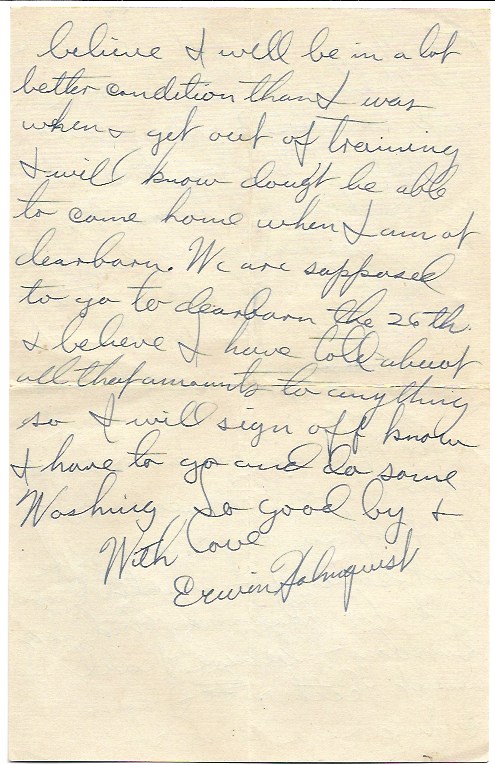 believe I will be in a lot
better condition than I was
when I get out of training
I will know dougt be able
to come home when I am at
dearbarn. We are supposed
to go to dearbarn the 26th.
I believe I have told about
all that amounts to anything
so I will sign off know
I have to go and do some
Washing So good by &
With love
Erwin Holmquist